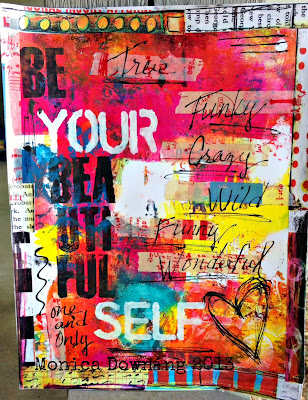 BE
True
Funky
YOUR
Crazy
BEA
Wild
UTI
Funny
FUL
Wonderful
one
and
Only
SELF
Monica Downing 2013